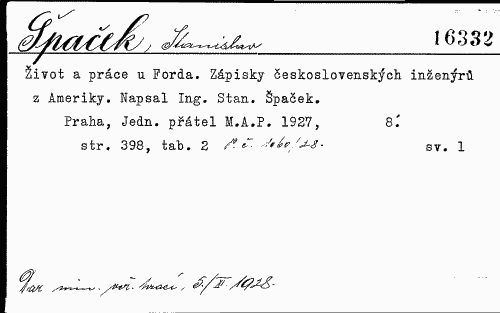 Špaček, Stanislav 16332
Život a práce u Forda. Zápisky československých inženýrů
z Ameriky. Napsal Ing. Stan. Špaček.
Praha, Jedn. přátel M.A.P. 1927, 8.°
str. 398, tab. 2 P. č. 1060/28. sv. 1
Dar min. veř. prací, 5./V. 1928.